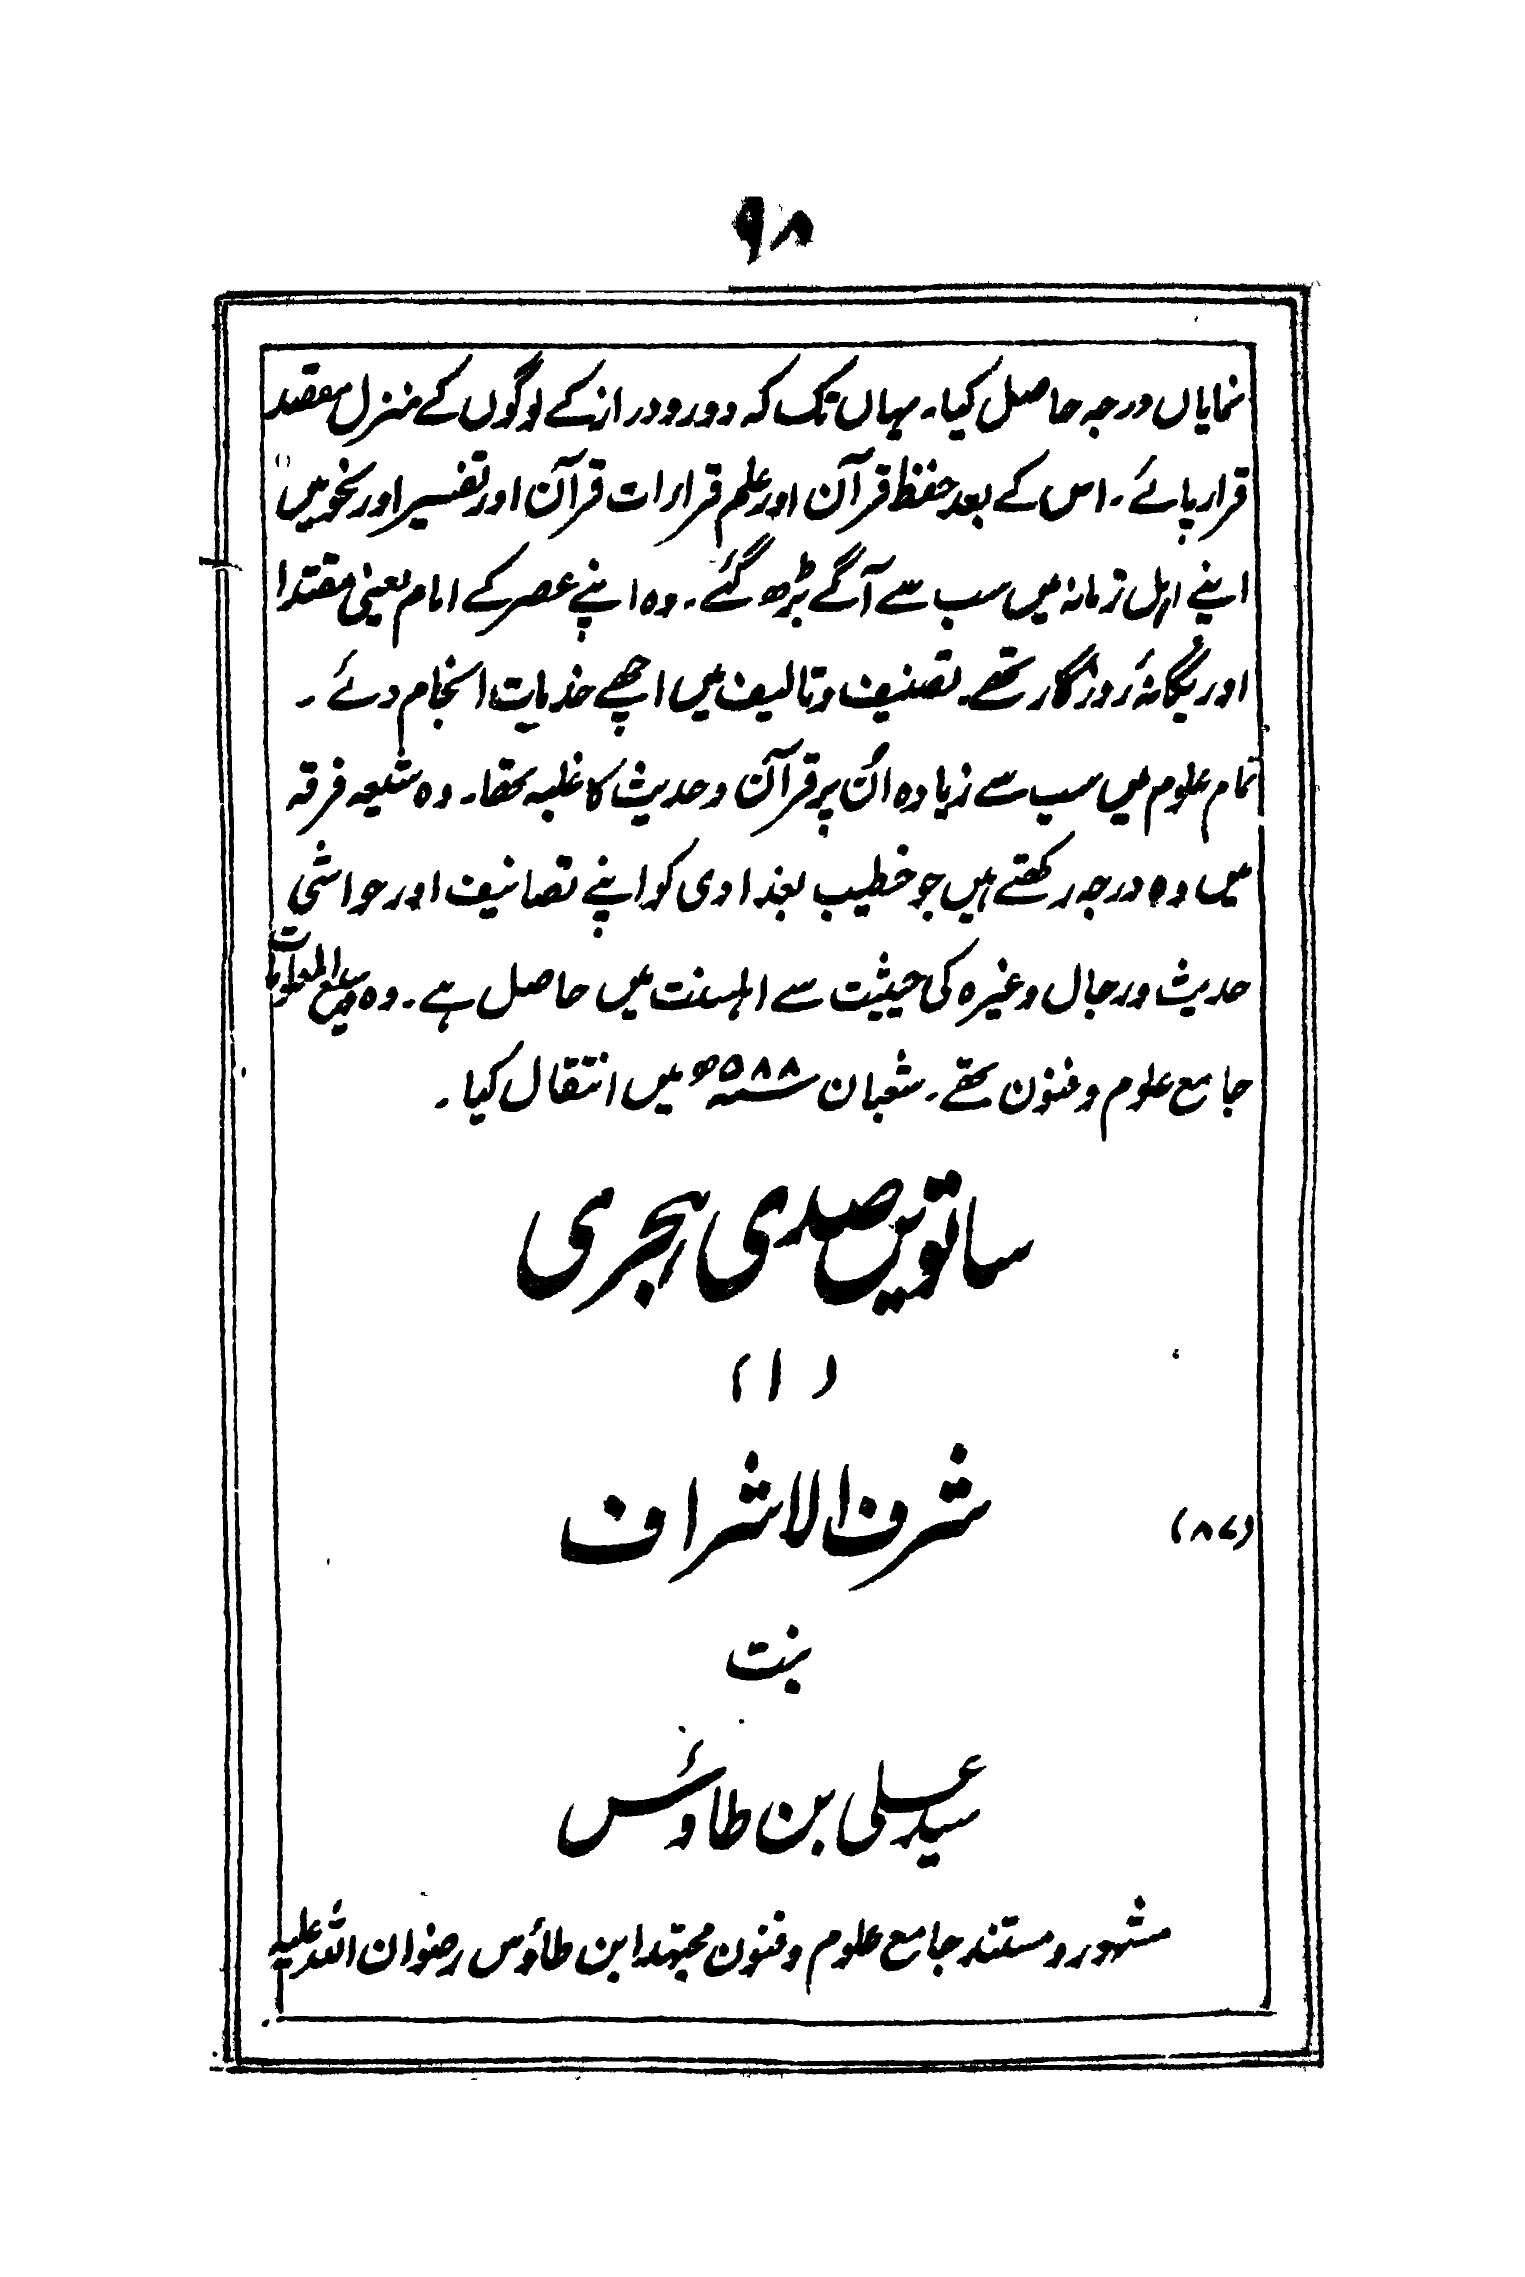 ۹۸
نمایاں درجہ حاصل کیا۔ یہاں تک کہ دور و دراز کے لوگوں کے منزل مقصد
قرار پائے۔ اس کے بعد حفظ قرآن اور علم قرارات قرآن اور تفسیر اور نحو میں
اپنے اہل زمانہ میں سب سے آگے بڑھ گئے۔ وہ اپنے عصر کے امام یعنی مقتدا
اور یگانۂ روزگار تھے۔ تصنیف و تالیف میں اچھے خدمات انجام دئے۔
تمام علوم میں سب سے زیادہ اُن پر قرآن و حدیث کا غلبہ تھا۔ وہ شیعہ فرقہ
میں وہ درجہ رکھتے ہیں جو خطیب بغدادی کو اپنے تصانیف اور حواشی
حدیث و رجال وغیرہ کی حیثیت سے اہلسنت میں حاصل ہے۔ وہ
جامع علوم و فنون تھے۔ شعبان ۵۸۸ھ میں انتقال کیا۔
ساتویں صدی ہجری
(۱)
(۸۷) شرف الاشراف
بنت
سید علی بن طاؤس
مشہور و مستند جامع علوم و فنون مجتہد ابن طاؤس رضوان اللہ علیہ